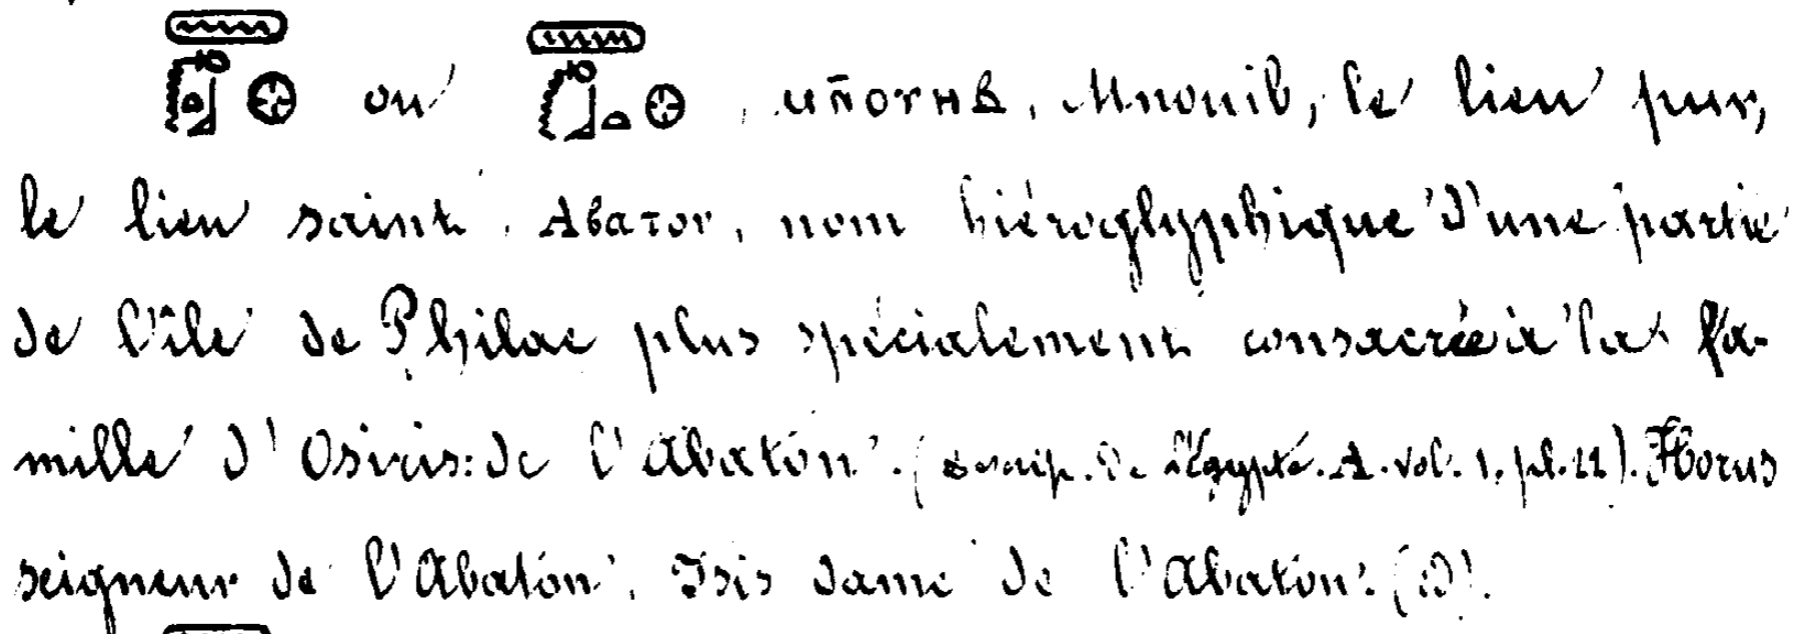 ou , ⲙⲡⲟⲩⲏⲃ, Mnouib, le lieu pur,
le lieu saint. Αβατον, nom hiéroglyphique d'une partie
de l'île de Philae plus spécialement consacrée à la fa-
mille d'Osiris: de l'Abaton. (Descrip. de l'Égypte. A. vol. 1. pl. 22). Horus
seigneur de l'Abaton, Isis dame de l'Abaton.